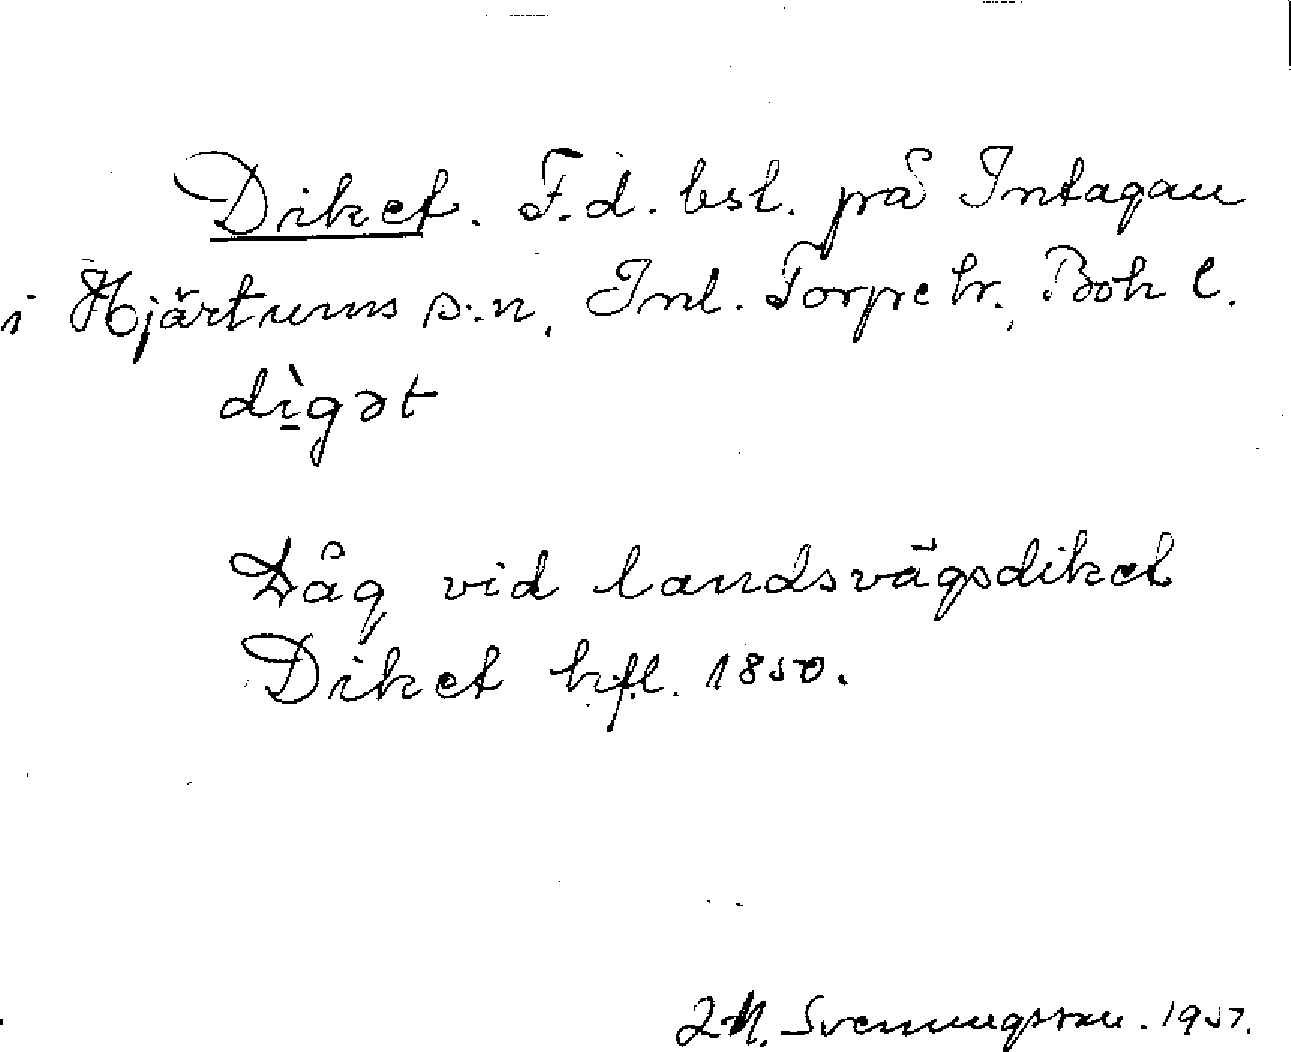 Diket. F.d. bst. på Intagan
i Hjärtums s:n, Inl. Torpe hr., Boh l.
dìgət
Låg vid landsvägsdiket
Diket hfl. 1850.
Svenningsson. 1937.